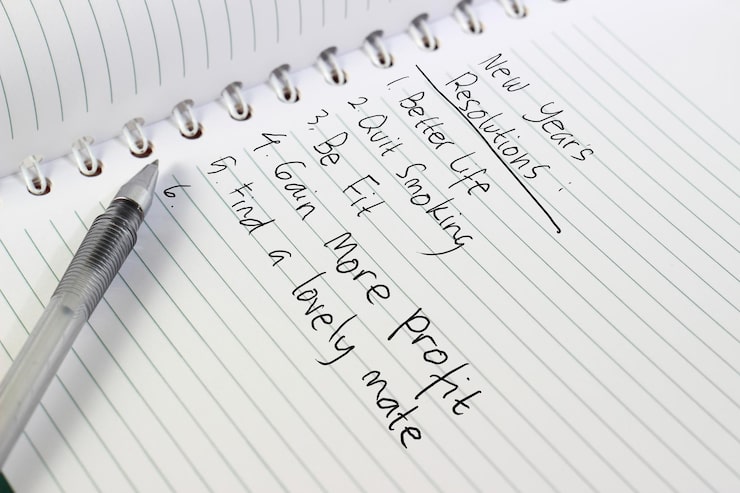 New Year's
Resolutions :
1. Better life
2 Quit Smoking
3, Be Fit
4. Gain More profit
5. Find a lovely mate
6.